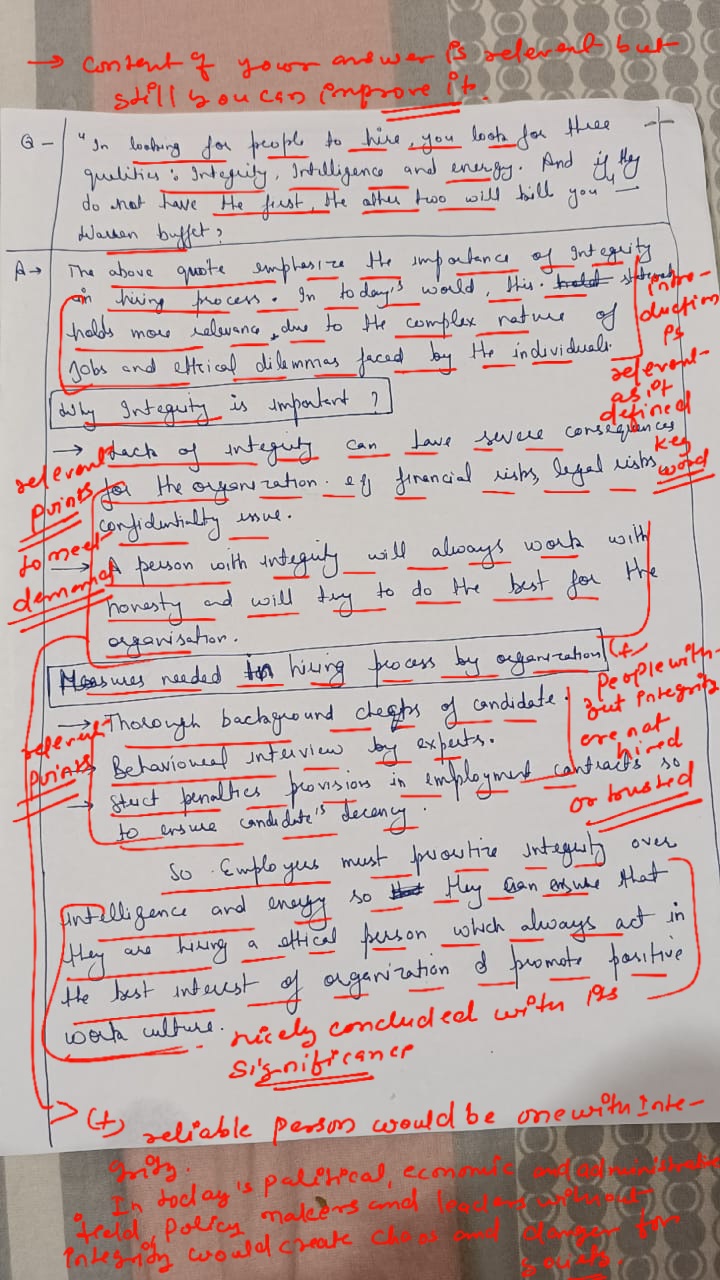 → Content of your answer is relevent but
still you can improve it.
Q - "In looking for people to hire, you look for three
qulities: Integrity, Intelligence and energy. And if they
do not have the first, the other two will kill you" —
Warren buffet?
A → The above quote emphasize the importance of Integrity
in hiring process. In today's world, this
holds more relevance, due to the complex nature of
Jobs and ethical dilemmas faced by the individuals.
intro-
duction
is
relevent
as it
defined
key
word
Why Integrity is important ?
→ Lack of integrity can have severe consequences
for the organization. eg financial risks, legal risks
confidentialty issue.
relevent
points
to meet
demand
→ A person with integrity will always work with
honesty and will try to do the best for the
organisation.
Measures needed in hiring process by organization
→ Thorough background checks of candidate.
→ Behavioural interview by experts.
→ Strict penalties provisions in employment contracts so
to ensure candidate's decency.
relevent
points
(+)
People with-
out integrity
are not
hired
or trusted
So Employers must prioritize integrity over
intelligence and energy so they can ensure that
they are hiring a ethical person which always act in
the best interest of organization & promote positive
work culture.
nicely concluded with its
significance
→ (+) reliable person would be one with Inte-
grity.
. In today's political, economic and administrative
field, policy makers and leaders without
integrity would create chaos and danger for
society.